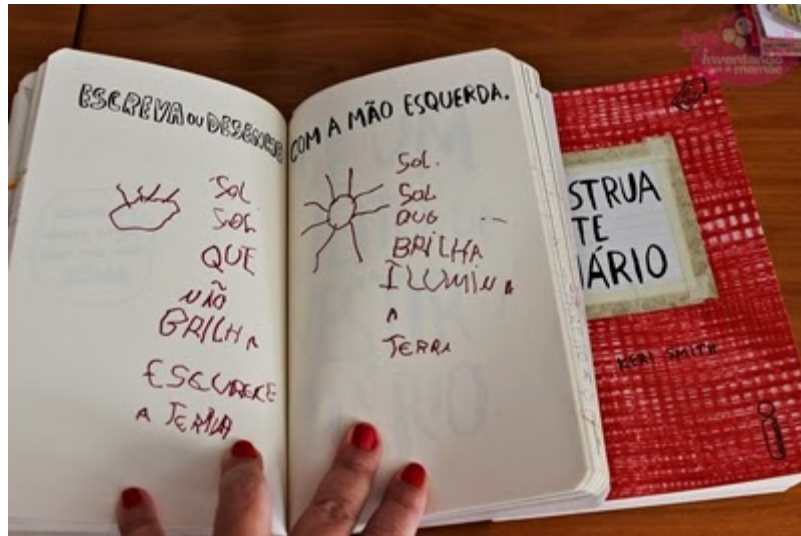 ESCREVA OU DESENHE COM A MÃO ESQUERDA.
SOL
SOL
QUE
NÃO
BRILHA
ESCURECE
A TERRA
SOL.
SOL
QUE
BRILHA
ILUMINA
A
TERRA
STRUA
TE
IÁRIO
KERI SMITH
inventando
a mamãe